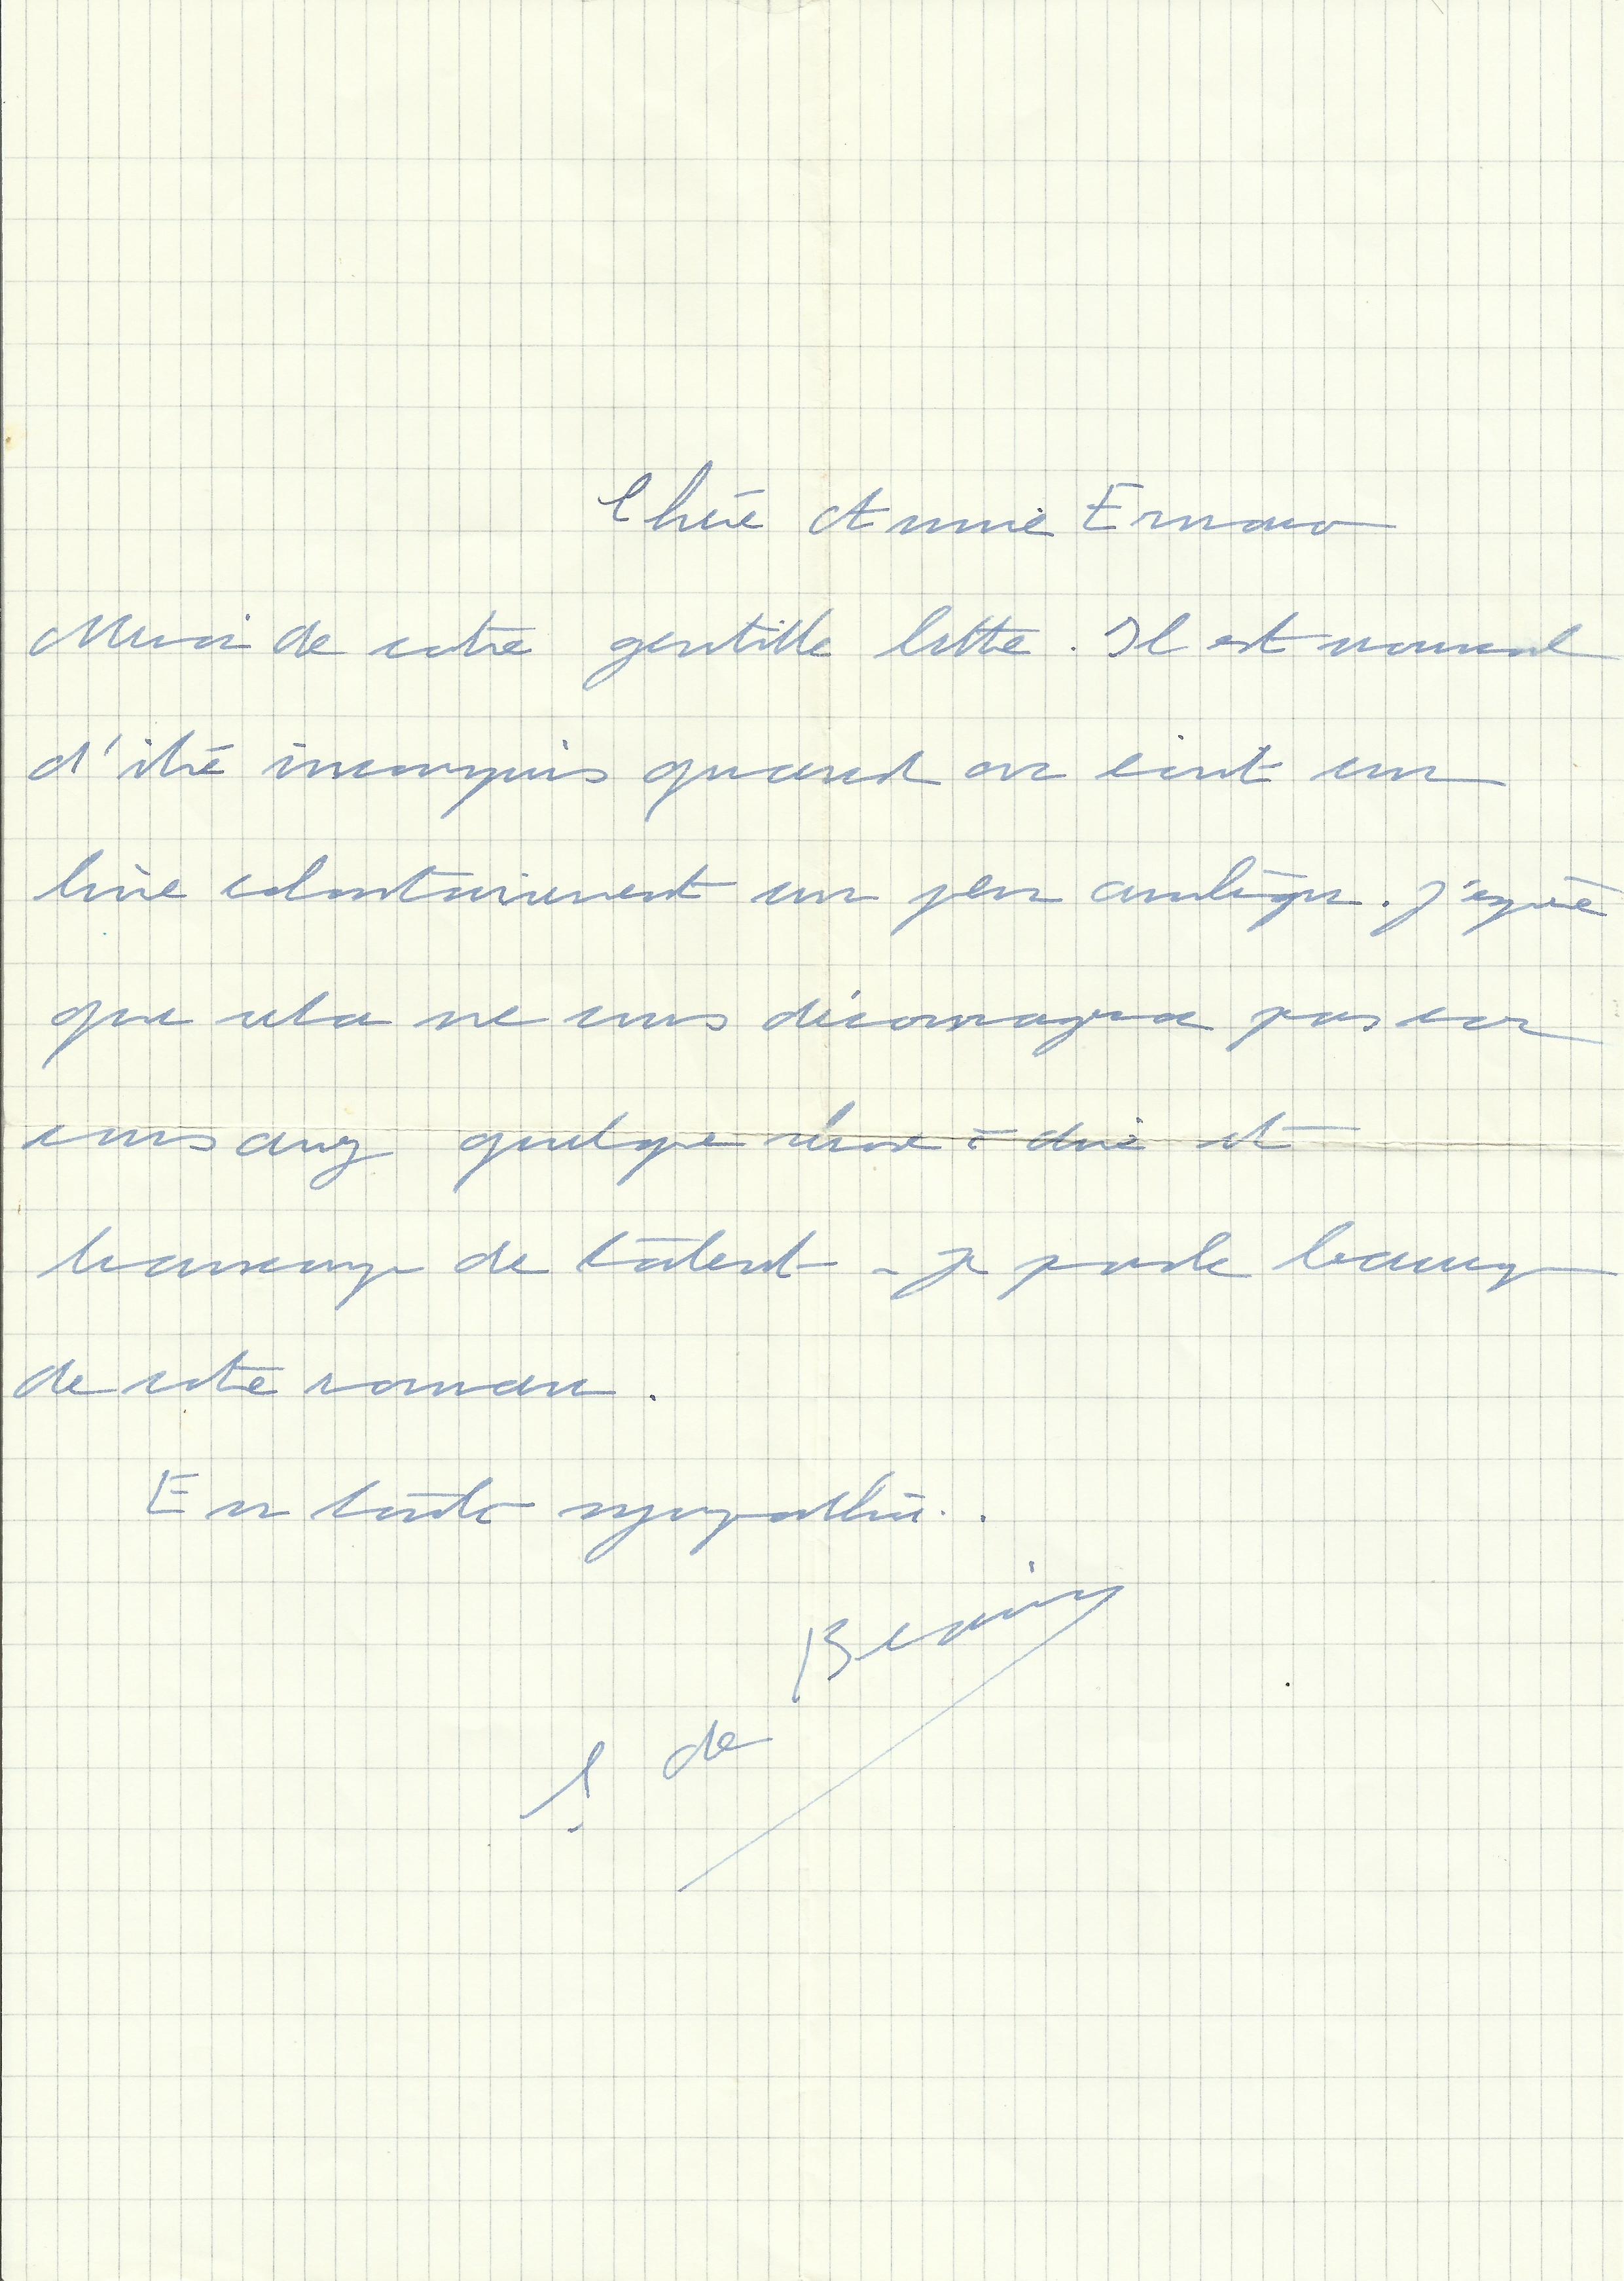 Chère Annie Ernaux
Merci de votre gentille lettre. Il est normal
d'être incompris quand on écrit un
livre volontairement un peu ambigu. J'espère
que cela ne vous découragera pas car
vous avez quelque chose à dire et
beaucoup de talent - je parle beaucoup
de votre roman.
En toute sympathie.
S. de Beauvoir